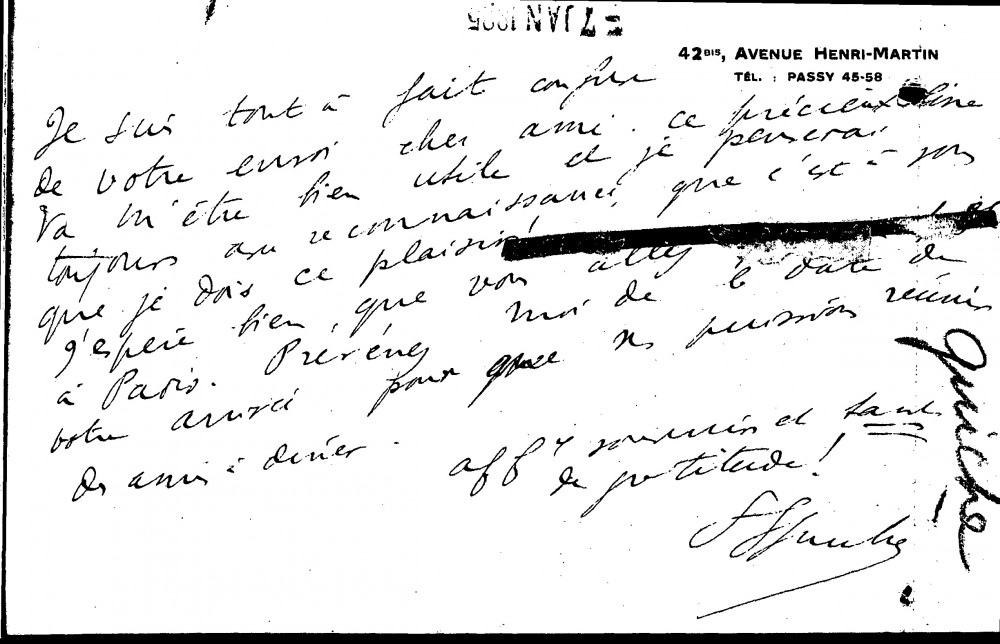 7 JAN
42BIS, AVENUE HENRI-MARTIN
TÉL. : PASSY 45-58
Je suis tout à fait confus
de votre envoi cher ami. ce précieux
va m'être bien utile et je penserai
toujours au reconnaissance, que c'est à vous
que je dois ce plaisir!
J'espère bien, que vous allez
à Paris. Prévénez moi de la date de
votre arrivée pour que ns puissions réunir
des amis à diner.
afft souvenir et tant
de gratitude!
Guiche